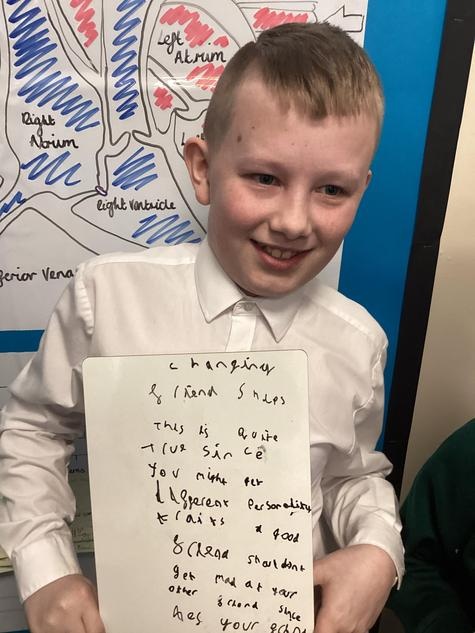 Left
Atrium
Right
Atrium
Right Ventricle
ferior Vena
changing
friend Ships
This is quite
true since
You might get
different Personality
traits a good
friend shouldnt
get mad at your
other friend since
hes your